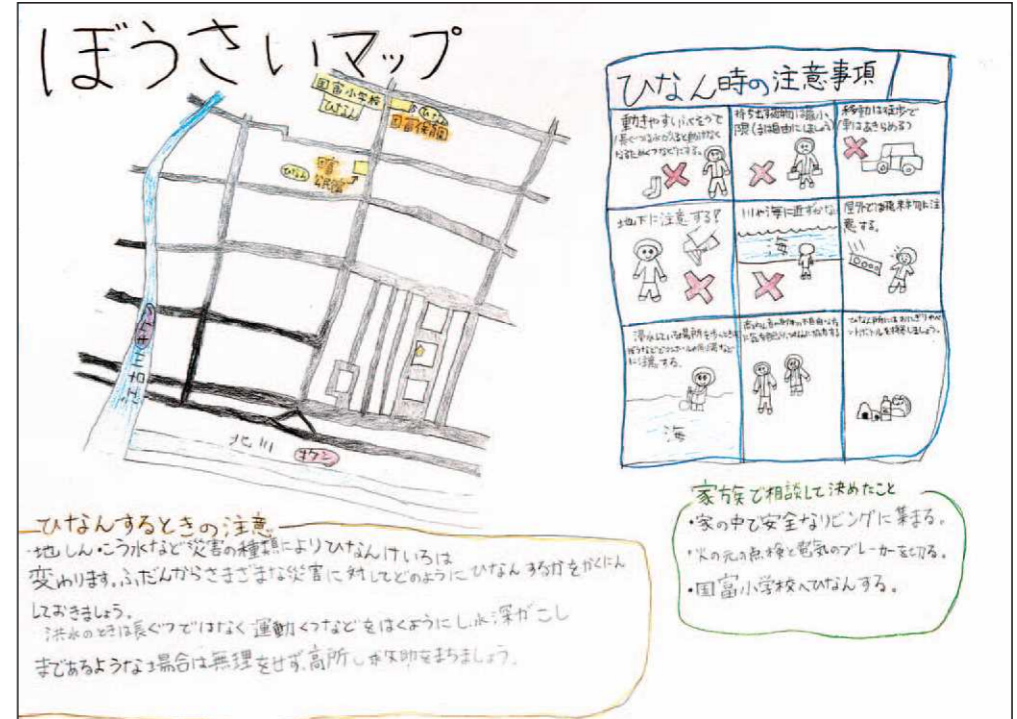 ぼうさいマップ
国富小学校
ひなん
ひなん
国富保育園
ひなん
国富
公民館
キケン
江古川
北川
キケン
ひなん時の注意事項
動きやすいふくそうで
長ぐつは水が入ると動けなく
なるためくつなどにする。
持ち出す荷物は最小
限(手は自由にしましょう)
移動は徒歩で
車はあきらめろう
地下に注意する!
川や海に近ずかない
海
屋外では落下物に注
意する。
浸水している場所を歩くときは
に注意する。
海
ひなん所にはおにぎりやペ
ットボトルを持参しましょう。
ひなんするときの注意
・地しん・こう水など災害の種類によりひなんけいろは
変わります。ふだんからさまざまな災害に対してどのようにひなんするかをかくにん
しておきましょう。
洪水のときは長ぐつではなく運動くつなどをはくようにし、水深がこし
まであるような場合は無理をせず、高所で救助をまちましょう。
家族で相談して決めたこと
・家の中で安全なリビングに集まる。
・火の元の点検と電気のブレーカーを切る。
・国富小学校へひなんする。